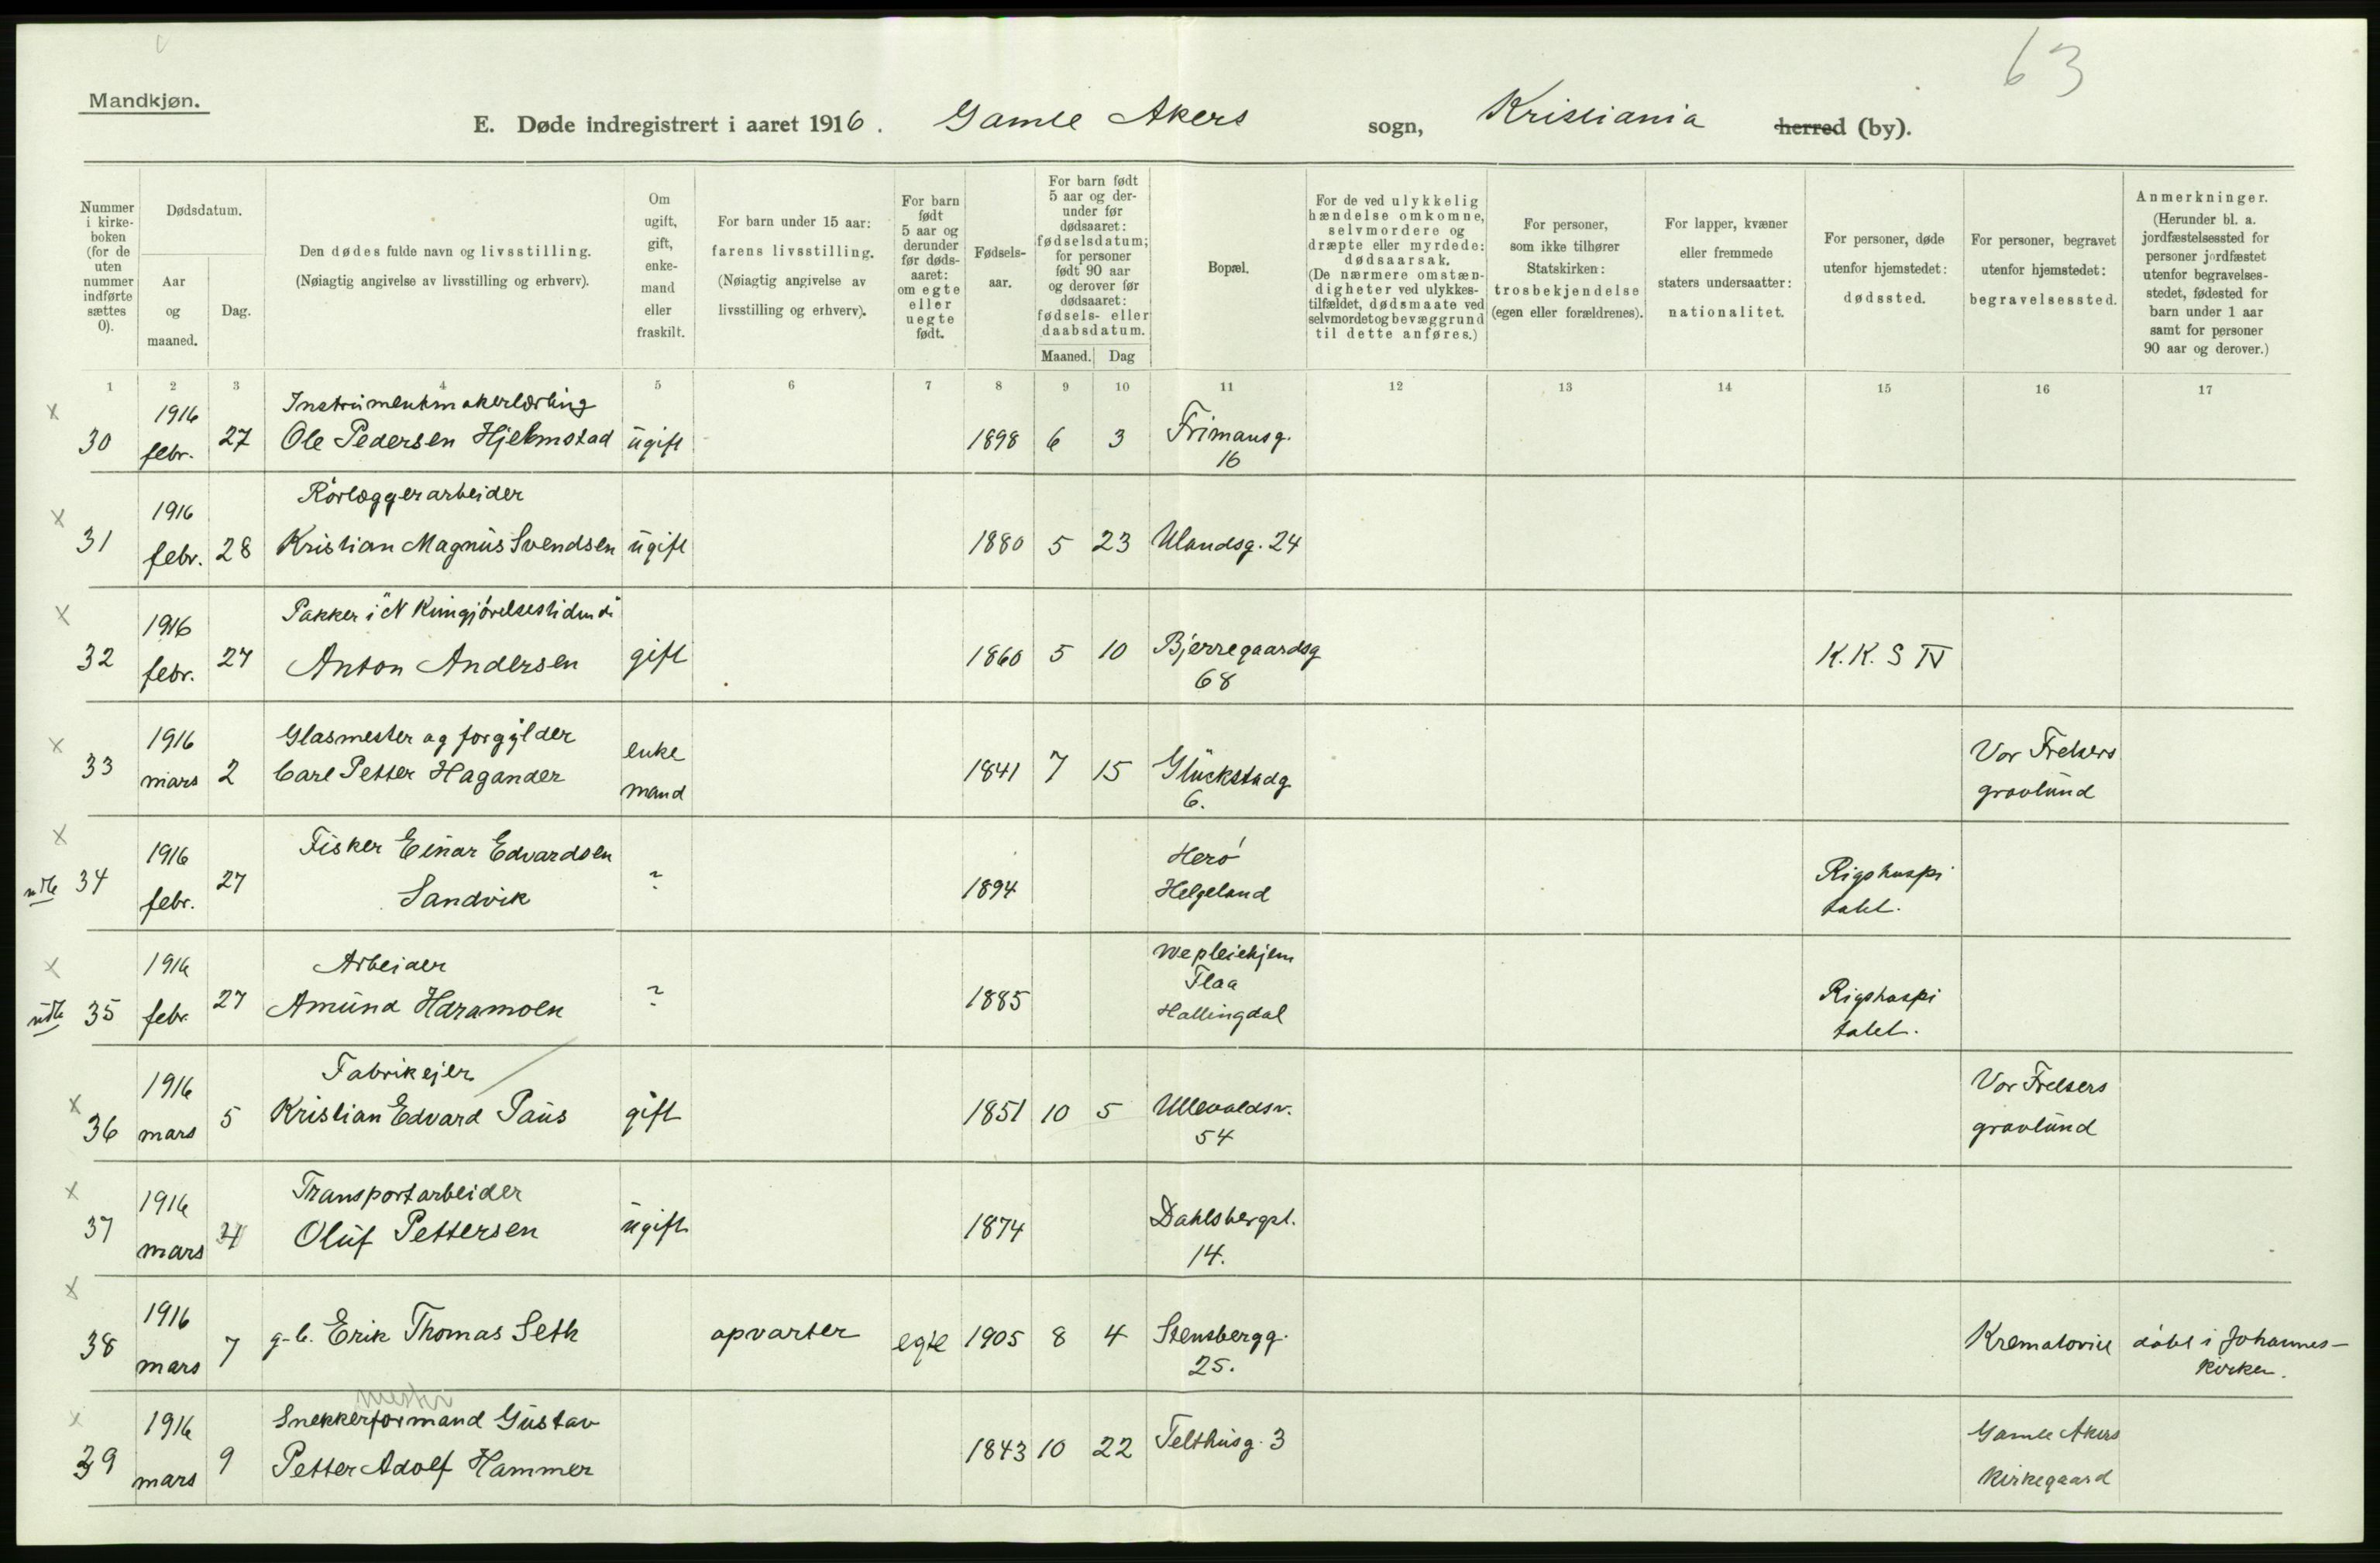 63
Mandkjøn.
E. Døde indregistrert i aaret 1916. Gamle Akers sogn, Kristiania herred (by).
Nummer i kirke-boken (for de uten nummer indførte sættes 0).
Dødsdatum.
Aar og maaned.
Dag.
Den dødes fulde navn og livsstilling.
(Nøiagtig angivelse av livsstilling og erhverv).
Om ugift, gift, enke-mand eller fraskilt.
For barn under 15 aar:
farens livsstilling.
(Nøiagtig angivelse av livsstilling og erhverv).
For barn født 5 aar og derunder før døds-aaret: om egte eller uegte født.
Fødsels-aar.
For barn født 5 aar og der-under før dødsaaret: fødselsdatum; for personer født 90 aar og derover før dødsaaret: fødsels- eller daabsdatum.
Maaned. Dag
Bopæl.
For de ved ulykkelig hændelse omkomne, selvmordere og dræpte eller myrdede: dødsaarsak. (De nærmere omstæn-digheter ved ulykkes-tilfældet, dødsmaate ved selvmordet og bevæggrund til dette anføres.)
For personer, som ikke tilhører Statskirken: trosbekjendelse (egen eller forældrenes).
For lapper, kvæner eller fremmede staters undersaatter: nationalitet.
For personer, døde utenfor hjemstedet: dødssted.
For personer, begravet utenfor hjemstedet: begravelsessted.
Anmerkninger. (Herunder bl. a. jordfæstelsessted for personer jordfæstet utenfor begravelses-stedet, fødested for barn under 1 aar samt for personer 90 aar og derover.)
1 2 3 4 5 6 7 8 9 10 11 12 13 14 15 16 17
x 1916 Instrumentmakerlærling
30 febr. 27 Ole Pedersen Hjelmstad ugift 1898 6 3 Frimansg.
16
x 1916 Rörlæggerarbeider
31 febr. 28 Kristian Magnus Svendsen ugift 1880 5 23 Ulandsg. 24
x 1916 Pakker i "N Kungjörelsestidende"
32 febr. 27 Anton Andersen gift 1860 5 10 Bjerregaardsg K.K.S IV
68
x 1916 Glasmester og forgylder enke Vor Frelsers
33 mars 2 Carl Petter Hagander mand 1841 7 15 Glückstadg gravlund
6.
x 1916 Fisker Einar Edvardsen Herö Rigshospi
udb 34 febr. 27 Sandvik ? 1894 Helgeland talet.
x 1916 Arbeider pleiehjem
Flaa Rigshospi
udb 35 febr. 27 Amund Haramoen ? 1885 Hallingdal talet.
x 1916 Fabrikejer Vor Frelsers
36 mars 5 Kristian Edvard Paus gift 1851 10 5 Ullevoldsv. gravlund
54
x 1916 Transportarbeider
37 mars 4 Oluf Pettersen ugift 1874 Dahlsbergst.
14.
x 1916
38 mars 7 g.b. Erik Thomas Seth opvarter egte 1905 8 4 Stensbergg. Krematoriet döbt i Johannes-
25. kirken.
mester
x 1916 Snekkerformand Gustav Gamle Akers
39 mars 9 Petter Adolf Hammer 1843 10 22 Telthusg. 3 kirkegaard